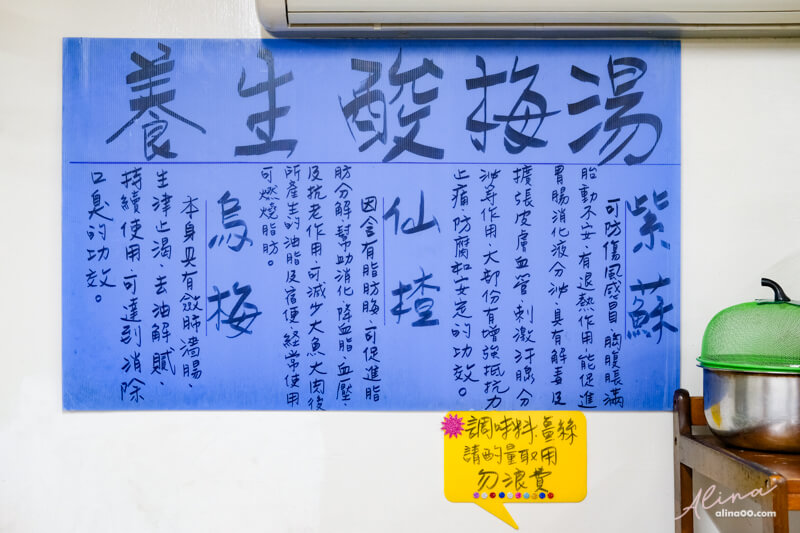 養生酸梅湯
紫蘇
可防傷風感冒、胸腹脹滿
胎動不安、有退熱作用、能促進
胃腸消化液分泌、具有解毒及
擴張皮膚血管、刺激汗腺分
泌等作用、大部份有增強抵抗力
止痛防腐和安定的功效。
仙楂
因含有脂肪脢、可促進脂
肪分解、幫助消化、降血脂、血壓、
及抗老作用、可減少大魚大肉後
所產生的油脂及宿便、經常使用
可燃燒脂肪。
烏梅
本身具有斂肺濇腸、
生津止渴、去油解膩、
持續使用、可達到消除
口臭的功效。
調味料.薑絲
請酌量取用
勿浪費
Alina
alina00.com